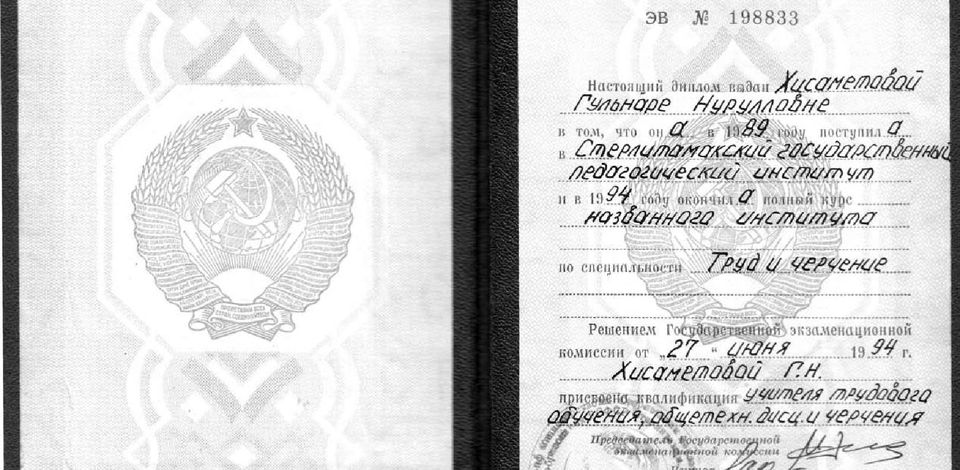 ЭВ № 198833
Настоящий диплом выдан Хисаметовой
Гульнаре Нурулловне
в том, что он а в 1989 году поступил а
в Стерлитамакский государственный
педагогический институт
и в 1994 году окончил а полный курс
названного института
по специальности Труд и черчение
Решением Государственной экзаменационной
комиссии от „27“ июня 1994 г.
Хисаметовой Г.Н.
присвоена квалификация учителя трудового
обучения, общетехн. дисц. и черчения
Председатель Государственной
экзаменационной комиссии